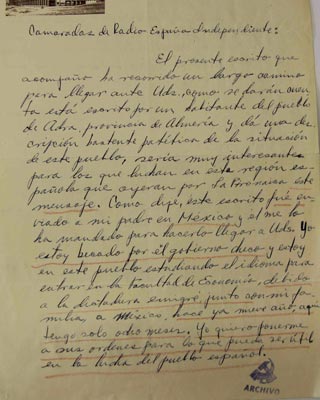 Camaradas de Radio España Independiente:
El presente escrito que
acompaño ha recorrido un largo camino
para llegar ante Uds, como se darán cuen
ta está escrito por un habitante del pueblo
de Adra, provincia de Almería y dá una des
cripción bastante patética de la situación
de este pueblo, sería muy interesante
para los que luchan en esta región es-
pañola que oyeran por la Pirenaica este
mensaje. Como dije, este escrito fué en
viado a mi padre en México y el me lo
ha mandado para hacerlo llegar a Uds. Yo
estoy becado por el gobierno checo y estoy
en este pueblo estudiando el idioma para
entrar en la facultad de Economía, debido
a la dictadura emigré, junto con mi fa
milia, a México, hace ya nueve años, aquí
tengo solo ocho meses. Yo quiero ponerme
a sus ordenes para lo que pueda ser útil
en la lucha del pueblo español.
ARCHIVO